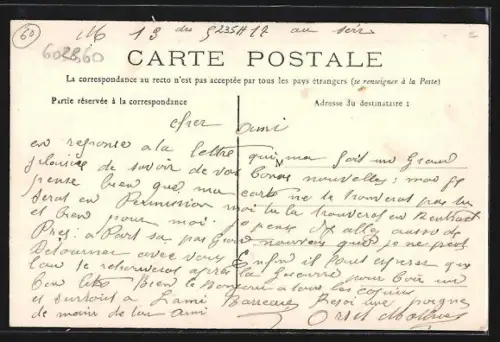 60
6028.60
M 13 des 9235H 12 au soir
CARTE POSTALE
La correspondance au recto n'est pas acceptée par tous les pays étrangers (se renseigner à la Poste)
Partie réservée à la correspondance
Adresse du destinataire :
cher ami
en reponse a la lettre qui ma fait un Grand
plaisir de savoir de vos Bonnes nouvelles; moi je
pense bien que ma carte ne te trouveras pas tu
seras en Permission moi tu la trouveras en rentrant
et bien pour moi. je pense dy aller aussi de
Pres: a Part sa pas Grand nouveau que je ne peut
Detourner avec vous Enfin il faut esperer que
lon se retrouveras apres la Guerre pour Boir un
Bon lité Bien le Bonjour a tous les copins
et surtout a Lami Barreau Resoi une pogne
de main de ton ami